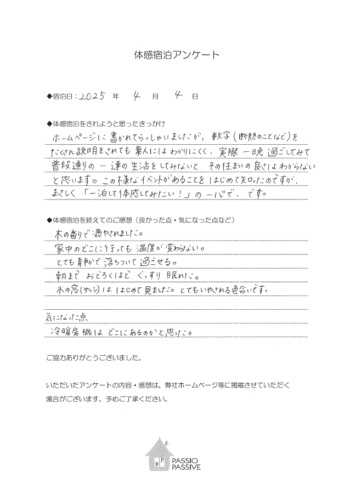 体感宿泊アンケート
◆宿泊日：2025 年 4 月 4 日
◆体感宿泊をされようと思ったきっかけ
ホームページに書かれてらっしゃいましたが、数字(断熱のことなど)を
たくさん説明をされても素人にはわかりにくく、実際一晩過ごしてみて
普段通りの一連の生活をしてみないと その住まいの良さはわからない
と思います。この様なイベントがあることをはじめて知ったのですが、
まさしく「一泊して体感してみたい！」の一心で、です。
◆体感宿泊を終えてのご感想（良かった点・気になった点など）
木の香りで癒やされました。
家中のどこに行っても温度が変わらない。
とても静かで落ちついて過ごせる。
朝まで おどろくほど ぐっすり眠れた。
木の窓(サッシ)ははじめて見ました。とてもいやされる色合いです。
気になった点
冷暖房機はどこにあるのかと思った。
ご協力ありがとうございました。
いただいたアンケートの内容・感想は、弊社ホームページ等に掲載させていただく
場合がございます。予めご了承ください。
PASSIO
PASSIVE